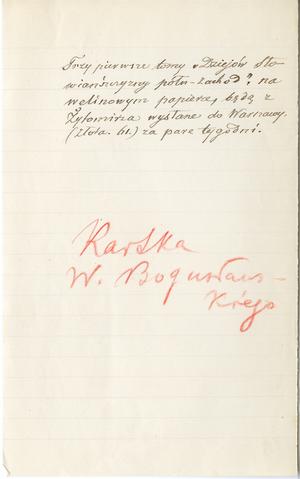 Trzy pierwsze tomy „Dziejów Sło
wiańszczyzny półn-zachod” na
welinowym papierze, będą z
Żytomirza wysłane do Warszawy.
(Złota. 61.) za parę tygodni.
Kartka
W. Bogusławs-
kiego